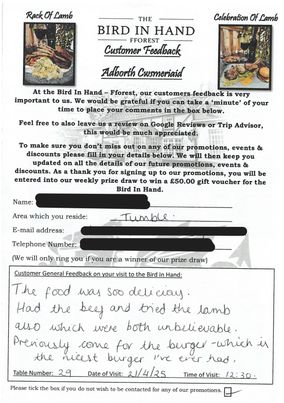 Rack Of Lamb
Celebration Of Lamb
THE
BIRD IN HAND
FFOREST
Customer Feedback
Adborth Cwsmeriaid
At the Bird In Hand – Fforest, our customers feedback is very
important to us. We would be grateful if you can take a 'minute' of your
time to place your comments in the box below.
Feel free to also leave us a review on Google Reviews or Trip Advisor,
this would be much appreciated.
To make sure you don't miss out on any of our promotions, events &
discounts please fill in your details below. We will then keep you
updated on all the details of our future promotions, events &
discounts. As a thank you for signing up to our promotions, you will be
entered into our weekly prize draw to win a £50.00 gift voucher for the
Bird In Hand.
Name:
Area which you reside: Tumble.
E-mail address:
Telephone Number:
(We will only ring you if you are a winner of our prize draw)
Customer General Feedback on your visit to the Bird in Hand:
The food was soo delicious.
Had the beef and tried the lamb
also which were both unbelievable.
Previously come for the burger - which is
the nicest burger I've ever had.
Table Number: 29 Date of Visit: 21/4/25 Time of Visit: 12:30.
Please tick the box if you do not wish to be contacted for any of our promotions.